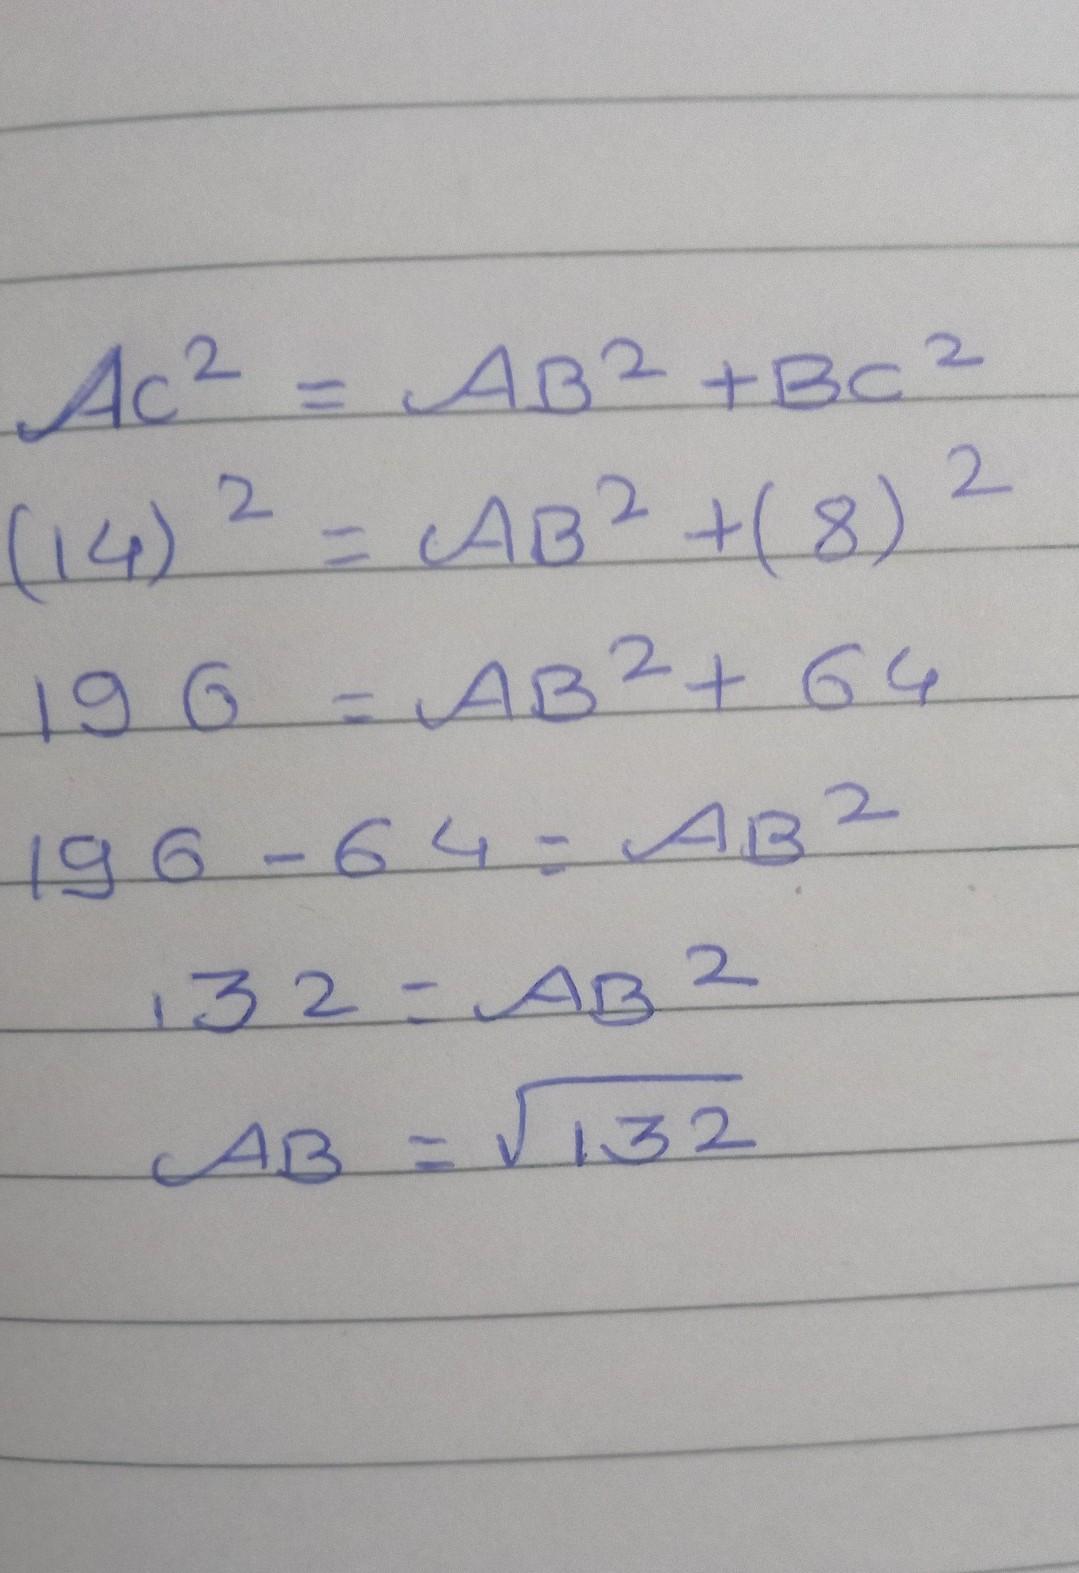 AC² = AB² + BC²
(14)² = AB² + (8)²
196 = AB² + 64
196 - 64 = AB²
132 = AB²
AB = √132